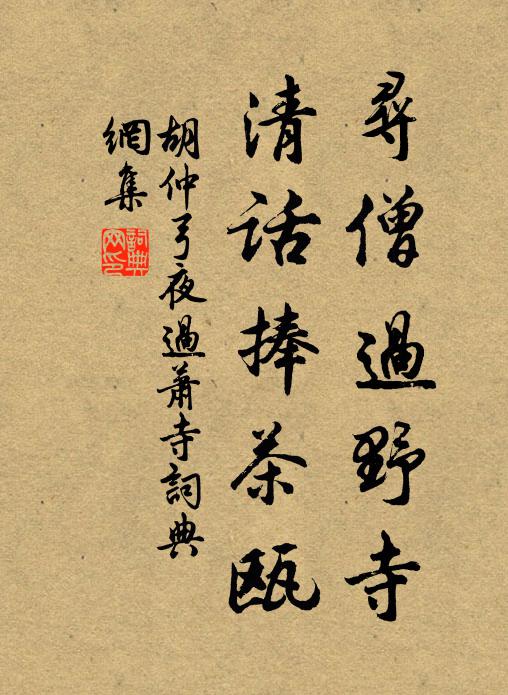 尋僧過野寺
清話捧茶甌
胡仲弓夜過蕭寺詞典
網集
詞典
网印